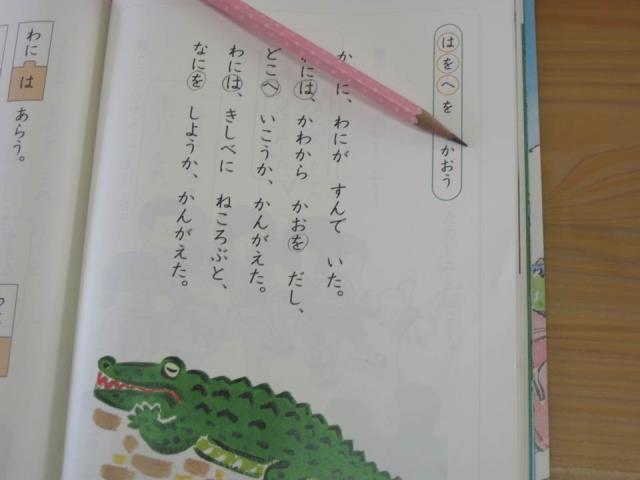 はをへを かおう
か に、わにが すんで いた。
には、かわから かおを だし、
どこへ いこうか、かんがえた。
わには、きしべに ねころぶと、
なにを しようか、かんがえた。
わに は あらう。